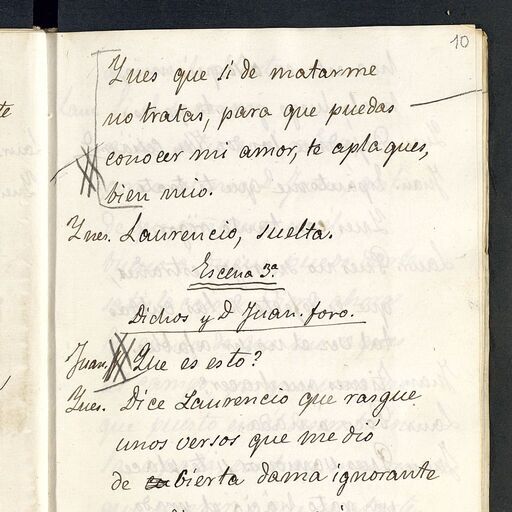 10
Ynes que si de matarme
no tratas, para que puedas
conocer mi amor, te aplaques,
bien mio.
Ynes. Laurencio, suelta.
Escena 3.ª
Dichos y D Juan. foro.
Juan. Que es esto?
Ynes. Dice Laurencio que rasgue
unos versos que me dió
de cierta dama ignorante